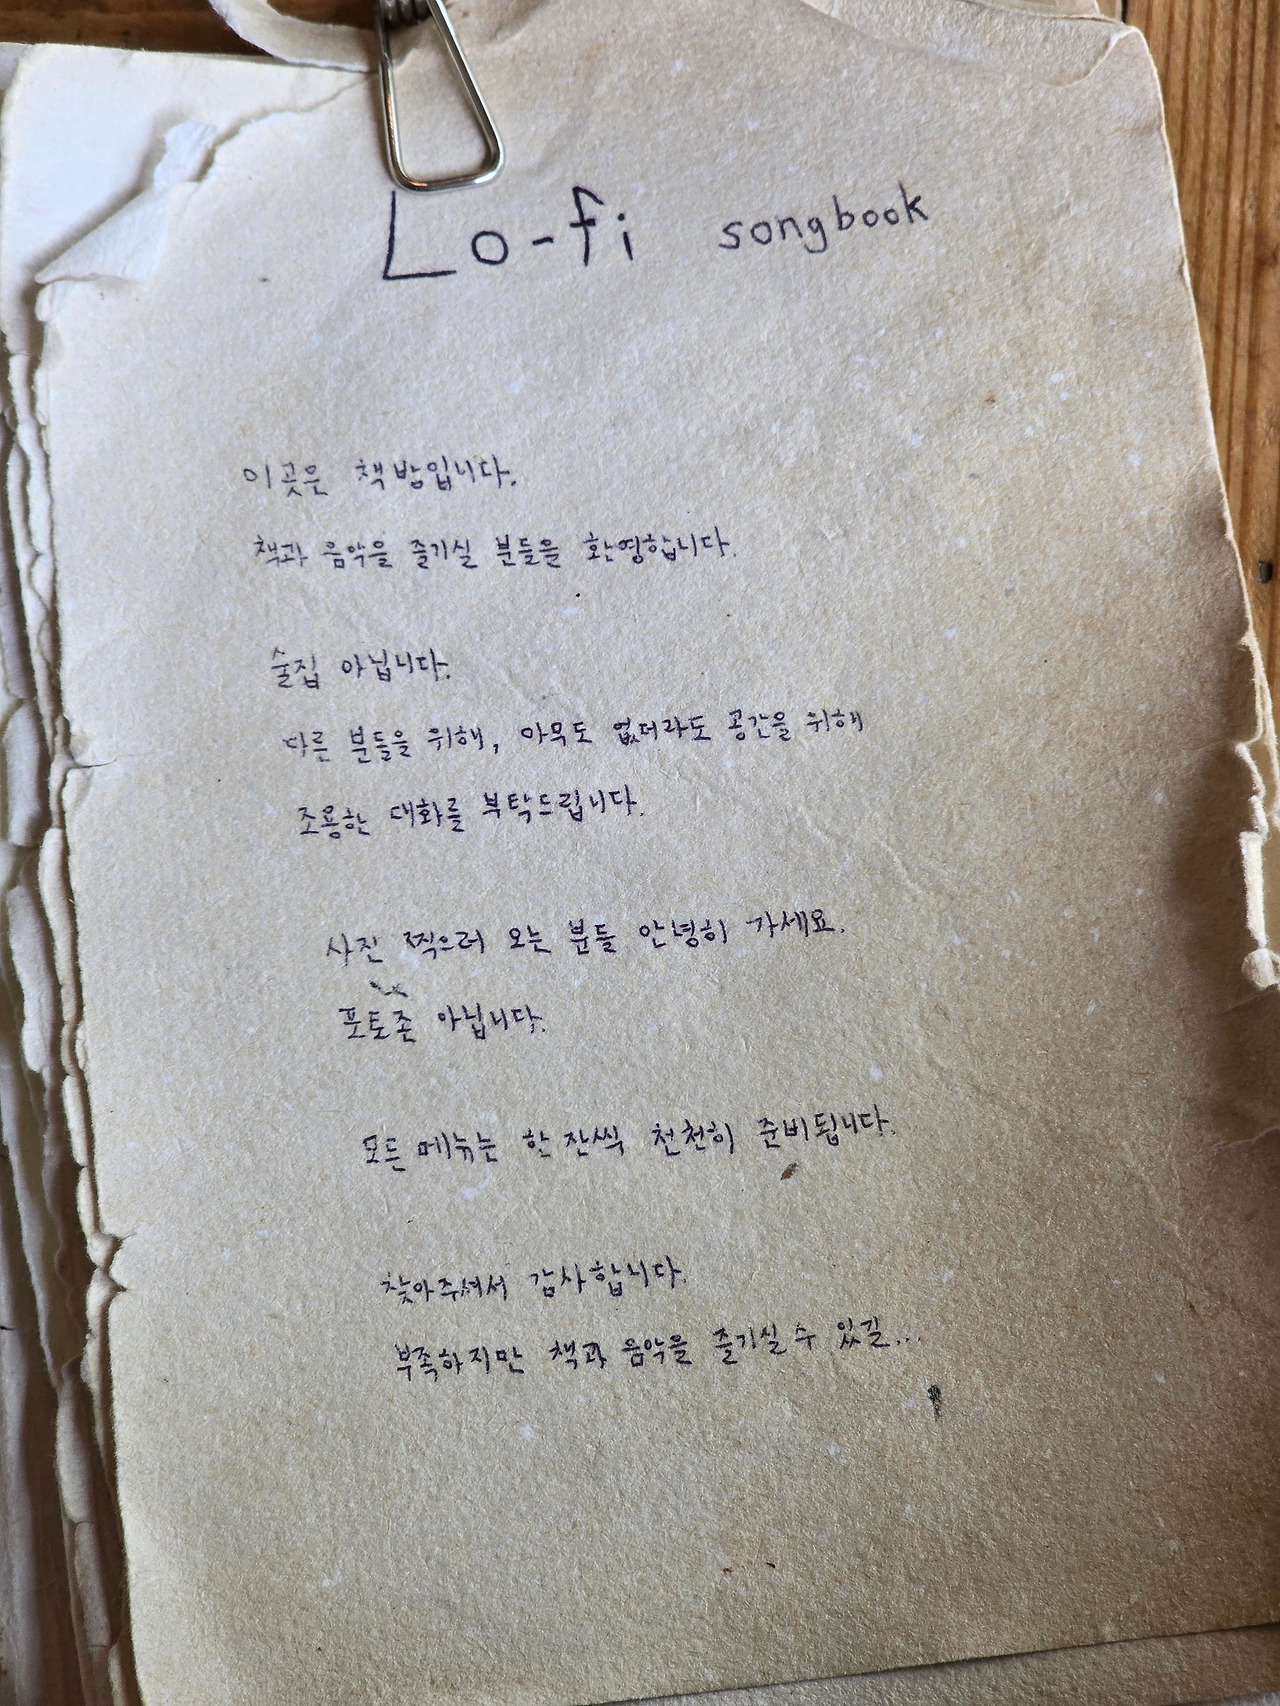 Lo-fi songbook
이곳은 책방입니다.
책과 음악을 즐기실 분들을 환영합니다.
술집 아닙니다.
다른 분들을 위해, 아무도 없더라도 공간을 위해
조용한 대화를 부탁드립니다.
사진 찍으러 오는 분들 안녕히 가세요.
포토존 아닙니다.
모든 메뉴는 한 잔씩 천천히 준비됩니다.
찾아주셔서 감사합니다.
부족하지만 책과 음악을 즐기실 수 있길...